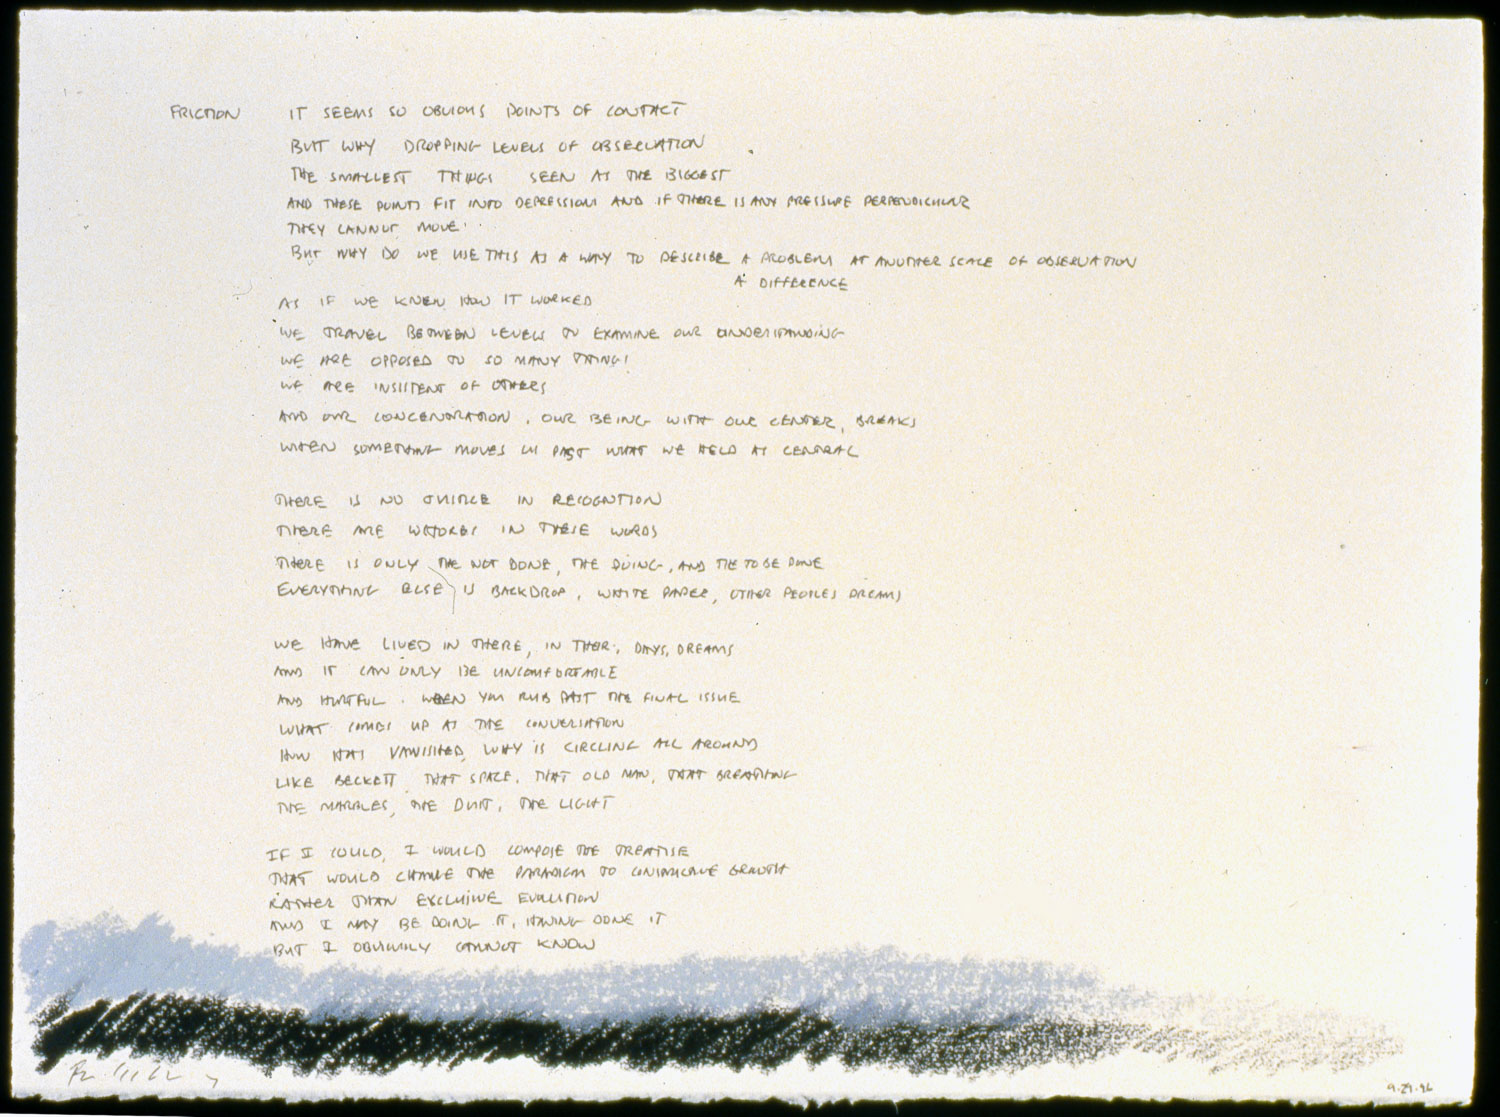 FRICTION IT SEEMS SO OBVIOUS POINTS OF CONTACT
BUT WHY DROPPING LEVELS OF OBSERVATION
THE SMALLEST THINGS SEEN AS THE BIGGEST
AND THESE POINTS FIT INTO DEPRESSIONS AND IF THERE IS ANY PRESSURE PERPENDICULAR
THEY CANNOT MOVE
BUT WHY DO WE USE THIS AS A WAY TO DESCRIBE A PROBLEM AT ANOTHER SCALE OF OBSERVATION
A DIFFERENCE
AS IF WE KNEW HOW IT WORKED
WE TRAVEL BETWEEN LEVELS TO EXAMINE OUR UNDERSTANDING
WE ARE OPPOSED TO SO MANY THINGS
WE ARE INSISTENT OF OTHERS
AND OUR CONCENTRATION, OUR BEING WITH OUR CENTER, BREAKS
WHEN SOMETHING MOVES US PAST WHAT WE HELD AS CENTRAL
THERE IS NO IN RECOGNITION
THERE ARE IN THESE WORDS
THERE IS ONLY THE NOT DONE, THE DOING, AND THE TO BE DONE
EVERYTHING ELSE IS BACKDROP, WHITE PAPER, OTHER PEOPLES DREAMS
WE HAVE LIVED IN THERE, IN THEIR, DAYS, DREAMS
AND IT CAN ONLY BE UNCOMFORTABLE
AND HURTFUL. WHEN YOU RUB PAST THE FINAL ISSUE
WHAT COMES UP AS THE CONVERSATION
HOW HAS VANISHED, WHY IS CIRCLING ALL AROUND
LIKE BECKETT, THAT SPACE, THAT OLD MAN, THAT BREATHING
THE MARBLES, THE DUST, THE LIGHT
IF I COULD, I WOULD COMPOSE THE TREATISE
THAT WOULD CHANGE THE PARADIGM TO GROWTH
RATHER THAN EXCLUSIVE EVOLUTION
AND I MAY BE DOING IT, HAVING DONE IT
BUT I OBVIOUSLY CANNOT KNOW
9-29-96